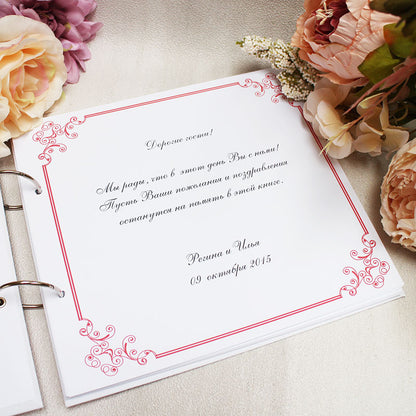 Дорогие гости!
Мы рады, что в этот день Вы с нами!
Пусть Ваши пожелания и поздравления
останутся на память в этой книге.
Регина и Илья
09 октября 2015